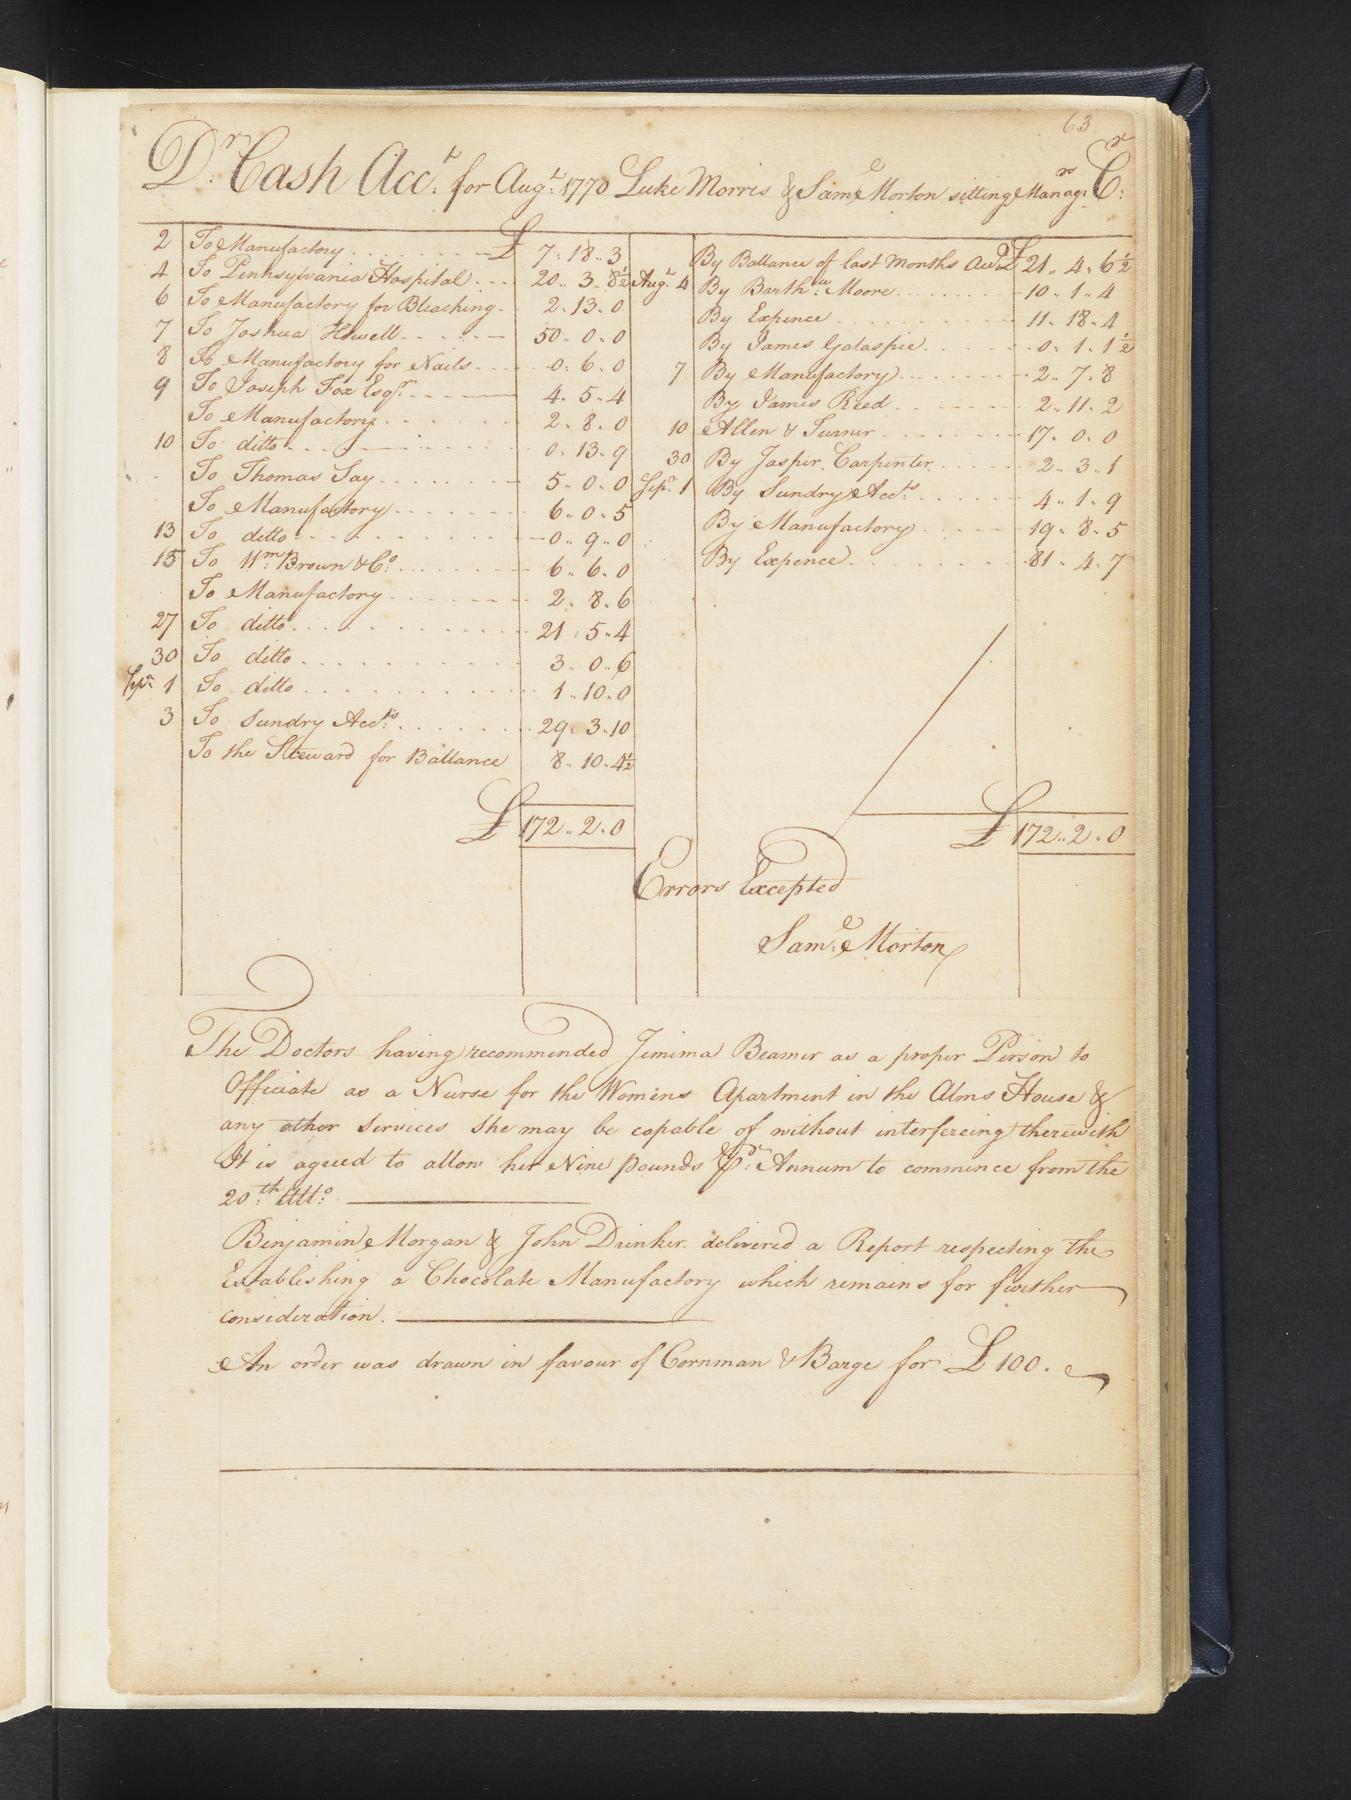 63
Dr. Cash Acct. for Augt. 1770 Luke Morris & Saml. Morton sitting Managrs. Cr.
2 To Manufactory £ 7. 18. 3
4 To Pennsylvania Hospital 20. 3. 8½
6 To Manufactory for Bleaching 2. 13. 0
7 To Joshua Howell 50. 0. 0
8 To Manufactory for Nails 0. 6. 0
9 To Joseph Fox Esqr. 4. 5. 4
To Manufactory 2. 8. 0
10 To ditto 0. 13. 9
To Thomas Say 5. 0. 0
To Manufactory 6. 0. 5
13 To ditto 0. 9. 0
15 To Wm. Brown & Co. 6. 6. 0
To Manufactory 2. 8. 6
27 To ditto 21. 5. 4
30 To ditto 3. 0. 6
Sepr. 1 To ditto 1. 10. 0
3 To Sundry Accts. 29. 3. 10
To the Steward for Ballance 8. 10. 4½
£ 172. 2. 0
By Ballance of last Months Acct. £ 21. 4. 6½
Augt. 4 By Barthw. Moore 10. 1. 4
By Expence 11. 18. 4
By James Galaspie 0. 1. 1½
7 By Manufactory 2. 7. 8
By James Reed 2. 11. 2
10 Allen & Turner 17. 0. 0
30 By Jasper Carpenter 2. 3. 1
Sepr. 1 By Sundry Accts. 4. 1. 9
By Manufactory 19. 8. 5
By Expence 81. 4. 7
£ 172. 2. 0
Errors Excepted
Saml. Morton
The Doctors having recommended Jemima Beamer as a proper Person to
Officiate as a Nurse for the Womens Apartment in the Alms House &
any other Services She may be capable of without interfereing therewith
It is agreed to allow her Nine pounds Pr. Annum to commence from the
20th. Ulto.
Benjamin Morgan & John Drinker delivered a Report respecting the
Establishing a Chocolate Manufactory which remains for further
consideration.
An order was drawn in favour of Cornman & Barge for £ 100.